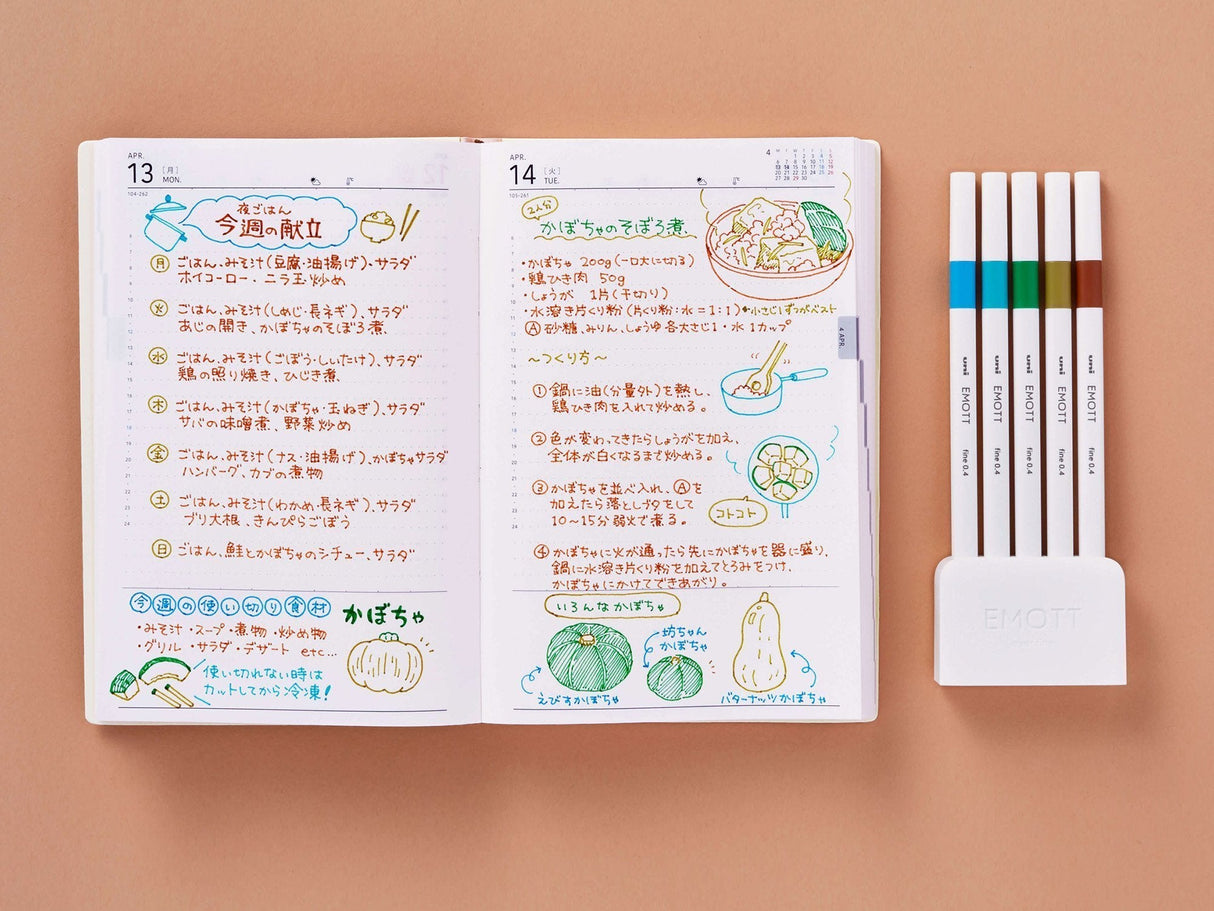 APR.
13 [月] MON.
104-262
夜ごはん
今週の献立
月 ごはん、みそ汁(豆腐・油揚げ)・サラダ
ホイコーロー・ニラ玉炒め
火 ごはん、みそ汁(しめじ・長ネギ)、サラダ
あじの開き、かぼちゃのそぼろ煮、
水 ごはん、みそ汁(ごぼう・しいたけ)、サラダ
鶏の照り焼き、ひじき煮、
木 ごはん、みそ汁(かぼちゃ・玉ねぎ)、サラダ
サバの味噌煮、野菜炒め
金 ごはん、みそ汁(ナス・油揚げ)、かぼちゃサラダ
ハンバーグ、カブの煮物
土 ごはん、みそ汁(わかめ・長ネギ)、サラダ
ブリ大根、きんぴらごぼう
日 ごはん、鮭とかぼちゃのシチュー、サラダ
今週の使い切り食材 かぼちゃ
・みそ汁・スープ・煮物・炒め物
・グリル・サラダ・デザート etc…
使い切れない時は
カットしてから冷凍!
APR.
14 [火] TUE.
105-261
4
2人分
かぼちゃのそぼろ煮、
・かぼちゃ 200g(一口大に切る)
・鶏ひき肉 50g
・しょうが 1片(千切り)
・水溶き片くり粉(片くり粉:水=1:1)←小さじ1ずつがベスト
Ⓐ砂糖、みりん、しょうゆ各大さじ1・水1カップ
～つくり方～
①鍋に油(分量外)を熱し、
鶏ひき肉を入れて炒める。
②色が変わってきたらしょうがを加え、
全体が白くなるまで炒める。
③かぼちゃを並べ入れ、Ⓐを
加えたら落としブタをして
10～15分弱火で煮る。
コトコト
④かぼちゃに火が通ったら先にかぼちゃを器に盛り、
鍋に水溶き片くり粉を加えてとろみをつけ、
かぼちゃにかけてできあがり。
いろんなかぼちゃ
坊ちゃん
かぼちゃ
えびすかぼちゃ
バターナッツかぼちゃ
4 APR.
uni EMOTT fine 0.4
uni EMOTT fine 0.4
uni EMOTT fine 0.4
uni EMOTT fine 0.4
uni EMOTT fine 0.4
EMOTT